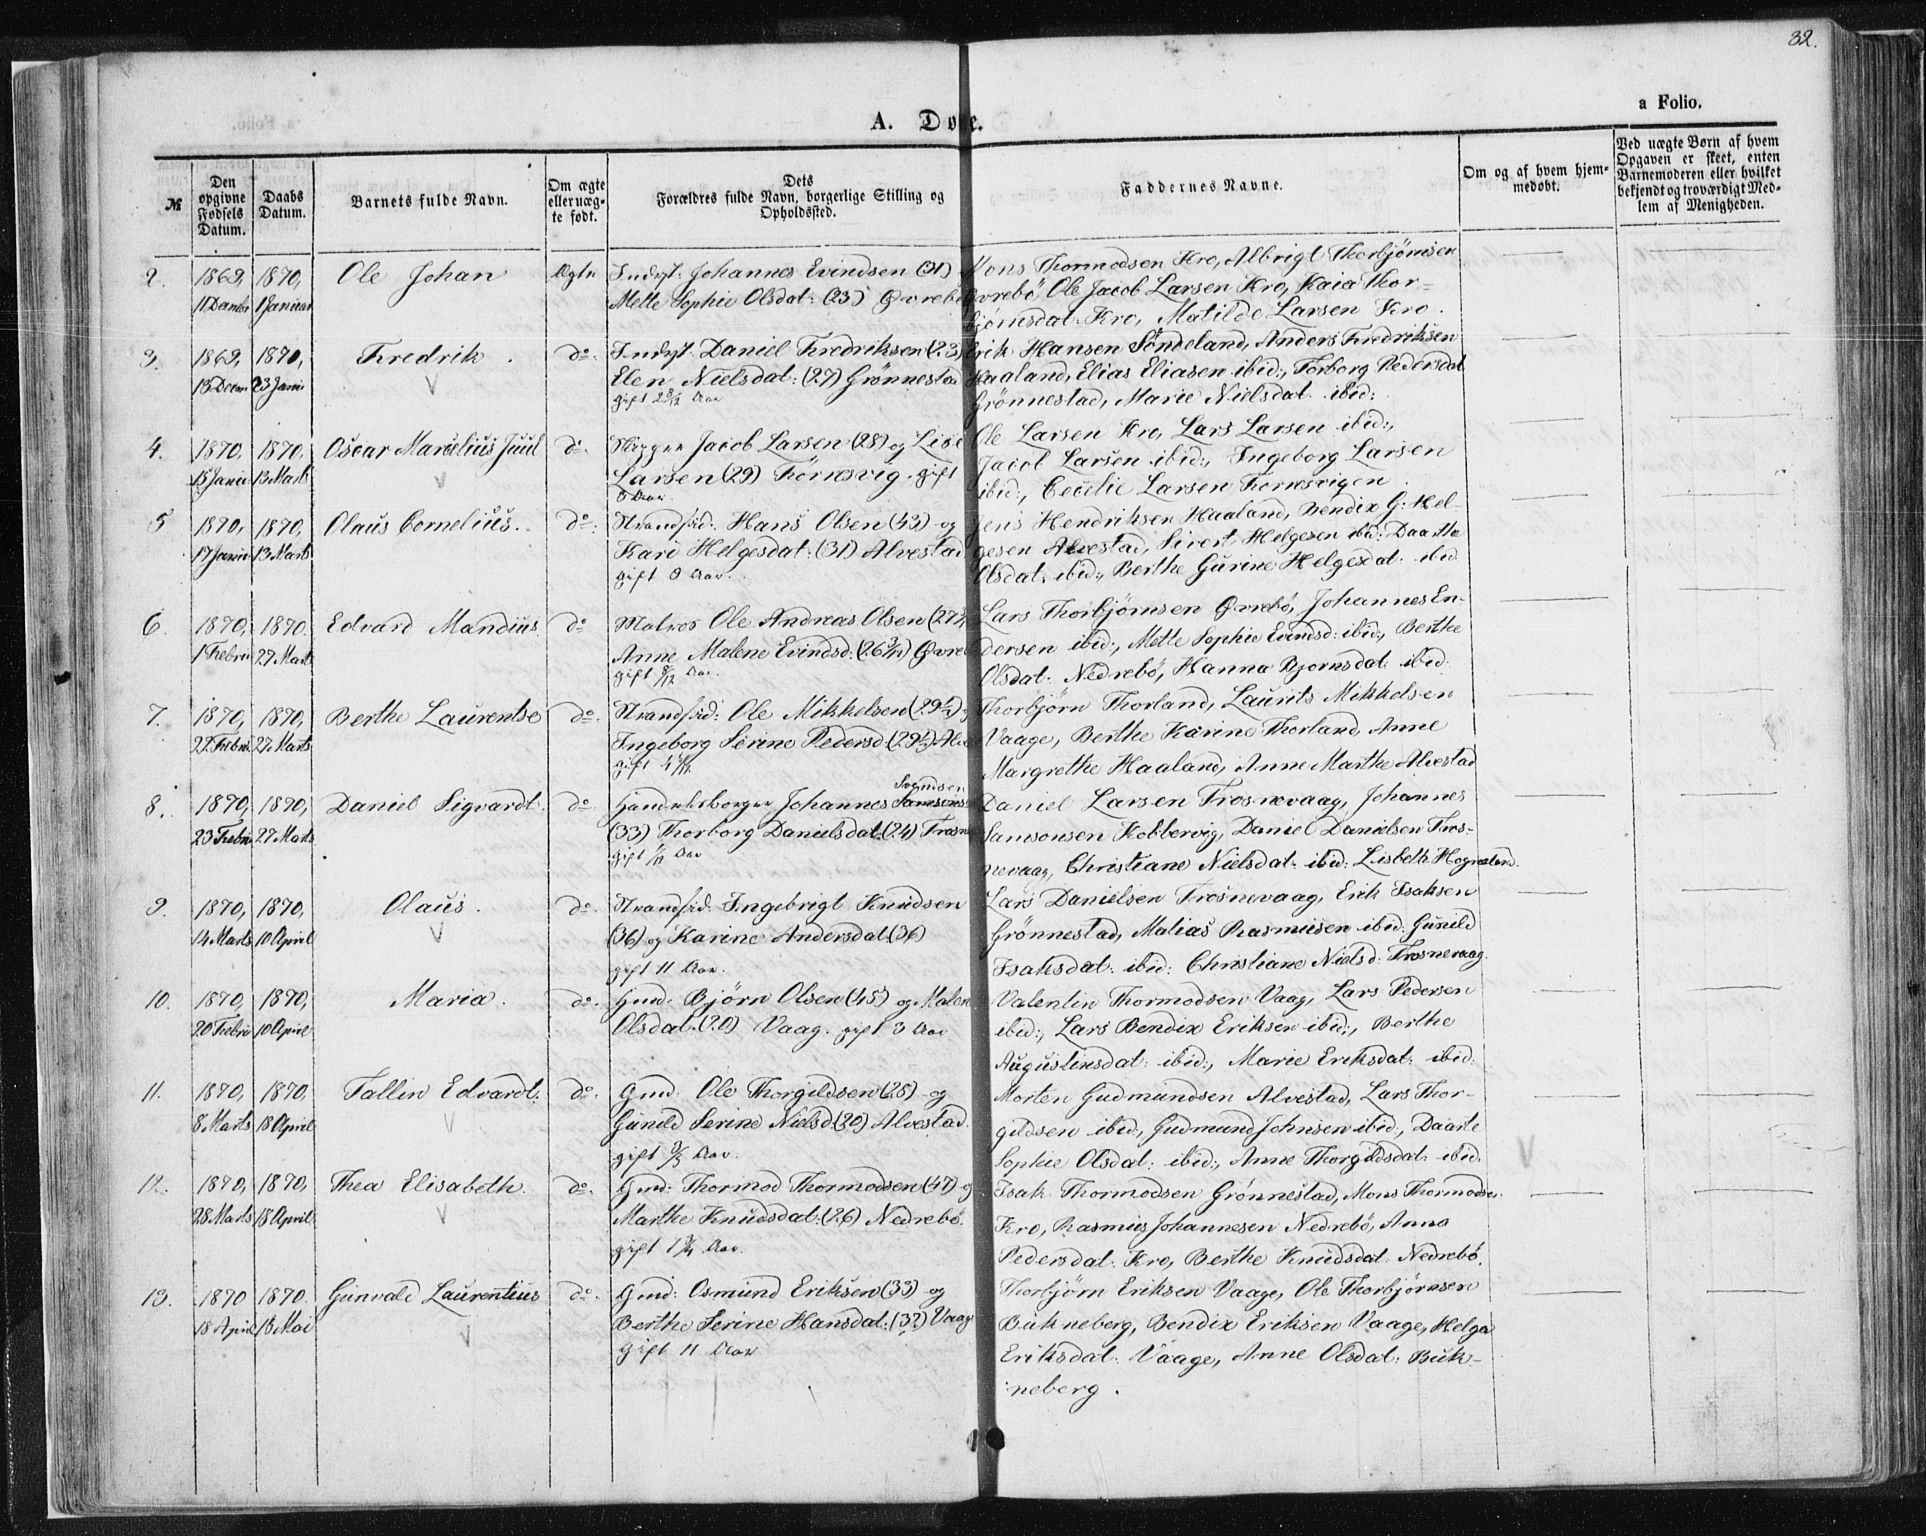 32.
a Folio.
A. Døbte.
№
Den opgivne Fødsels Datum.
Daabs Datum.
Barnets fulde Navn.
Om ægte eller uægte født.
Dets Forældres fulde Navn, borgerlige Stilling og Opholdssted.
Faddernes Navne.
Om og af hvem hjemmedøbt.
Ved uægte Børn af hvem Opgaven er skeet, enten Barnemoderen eller hvilket bekjendt og troværdigt Medlem af Menigheden.
2. 1869, 1870, Ole Johan Ægte Indst: Johannes Evindsen (31) Mons Thormodsen Kro, Albrigt Thorbjörnsen
11 Decmbr 1 Januar Mette Sophie Olsdat: (23) Øvrebö Øvrebö, Ole Jacob Larsen Kro, Kaia Thor-
bjørnsdat: Kro, Matilde Larsen Kro.
3. 1869, 1870, Fredrik. do. Indst. Daniel Fredriksen (23) Erik Hansen Söndeland, Anders Fredriksen
13 Decm 23 Janu Elen Nielsdat: (27) Grönnestad Haaland, Elias Eliasen ibid:, Torborg Pedersdat
gift Aar Grönnestad, Marie Nielsdat. ibid:
4. 1870, 1870, Oscar Marselius Juul do. Skipper Jacob Larsen (28) og Lise Ole Larsen Kro, Lars Larsen ibid:,
15 Janu 13 Marts Larsen (29) Förresvig. gift Jacob Larsen ibid:, Ingeborg Larsen
Aar. ibid:, Cecilie Larsen Forresvigen.
5 1870, 1870, Olaus Cornelius. do. Strandsid: Hans Olsen (43) og Jens Hendriksen Haaland, Bendix G: Hel-
17 Janu 13 Marts Kari Helgesdat: (31) Alvestad gesen Alvestad, Sivert Helgesen ibid: Daarthe
gift Aar. Olsdat: ibid:, Berthe Gurine Helgesdat. ibid
6. 1870, 1870. Edvard Mandius do Matros Ole Andreas Olsen Lars Thorbjörnsen Øvrebö, Johannes En-
1 Febru 27 Marts Anne Malene Evindsd: Øvrebö dersen ibid:, Mette Sophie Evindsd: ibid:, Berthe
gift Aar. Olsdat: Nedrebö, Hanna Bjornsdat: ibid.
7. 1870, 1870, Berthe Laurentse do. Strandsid: Ole Mikkelsen (29½) Thorbjörn Thorland, Laurits Mikkelsen
22 Febru 27 Marts Ingeborg Serine Pedersd: (29½) Vaage, Berthe Karine Thorland, Anne
gift Margrethe Haaland, Anne Marthe Alvestad
8. 1870, 1870, Daniel Sigvardt. do. Handelsborger Johannes Samsonsen Daniel Larsen Trosnevaag, Johannes
23 Febru 27 Marts (33) Thorborg Danielsdat: (24) Samsonsen Kobbervig, Daniel Danielsen Tros-
gift Aar nevaag, Christiane Nielsdat. ibid: Lisbeth
9. 1870, 1870, Olaus. do. Strandsid. Ingebrigt Knudsen Lars Danielsen Trosnevaag, Erik Isaksen
14 Marts 10 April (36) og Karine Andersdat (36) Grönnestad, Matias Rasmusen ibid: Gunild
gift 11 Aar. Isaksdat: ibid: Christiane Nielsd: Trosnevaag.
10. 1870, 1870, Maria. do. Gmd: Björn Olsen (45) og Malene Valentin Thormodsen Vaag, Lars Pedersen
20 Febru 10 April Olsdat. (20) Vaag. gift 3 Aar ibid:, Lars Bendix Eriksen ibid:, Berthe
Augustinsdat: ibid:, Marie Eriksdat: ibid:
11. 1870, 1870, Tallin Edvardt. do. Gmd: Ole Thorgildsen (25) og Morten Gudmundsen Alvestad, Lars Thor-
8 Marts 18 April Gunild Serine Nielsd (20) Alvestad. gildsen ibid:, Gudmund Johnsen ibid:, Daarte
gift Aar. Sophie Olsdat: ibid:, Anne Thorgildsdat: ibid.
12. 1870, 1870, Thea Elisabeth. do. Gmd: Thormod Thormodsen (47) og Isak Thormodsen Grönnestad, Mons Thormodsen
28 Marts 18 April Marthe Knudsdat: (26) Nedrebö. Kro, Rasmus Johannesen Nedrebö, Anna
gift 1¾ Aar. Pedersdat: Kro, Berthe Knudsdat: Nedrebö.
13. 1870 1870. Gunvald Laurentius do. Gmd: Osmund Eriksen (33) og Thorbjörn Eriksen Vaage, Ole Thorbjörnsen
18 April 15 Mai Berthe Serine Hansdat: (32) Vaage Bukneberg, Bendix Eriksen Vaage, Helga
Gift 11 Aar Eriksdat: Vaage, Anne Olsdat: Buk-
neberg.